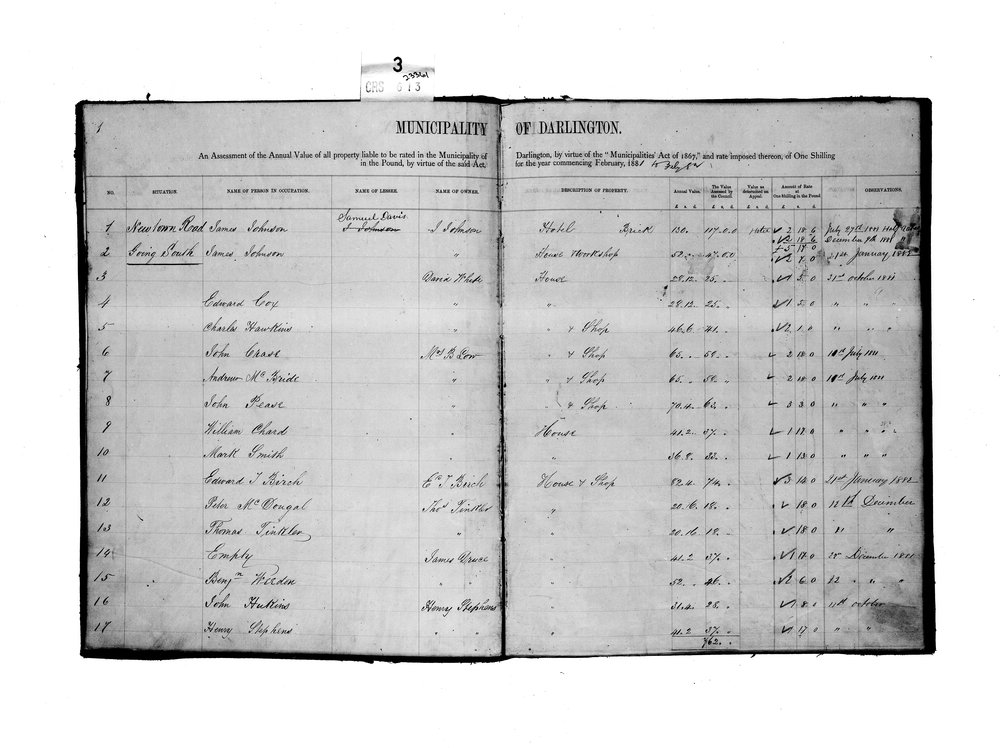 3
23361
CRS 613
1
MUNICIPALITY OF DARLINGTON.
An Assessment of the Annual Value of all property liable to be rated in the Municipality of Darlington, by virtue of the "Municipalities' Act of 1867," and rate imposed thereon, of One Shilling
in the Pound, by virtue of the said Act, for the year commencing February, 1881
NO. SITUATION. NAME OF PERSON IN OCCUPATION. NAME OF LESSEE. NAME OF OWNER. DESCRIPTION OF PROPERTY. Annual Value. The Value Assessed by the Council. Value as determined on Appeal. Amount of Rate at One Shilling in the Pound. OBSERVATIONS.
£ s. d. £ s. d. £ s. d. £ s. d.
Samuel Davis
1 Newtown Road James Johnson J Johnson J Johnson Hotel Brick 130. 117.0.0 ✓ 2 18 6 July 27th 1881
✓ 2 18 6 December 9th 1881
5 17 0
2 Going South James Johnson " House Workshop 52. . 47.0.0 ✓ 2 7 0 21st January 1882
3 David White House 28.12. 25. . ✓ 1 5 0 31st october 1881
4 Edward Cox " " 28.12. 25. . ✓ 1 5 0 " " "
5 Charles Hawkins " " & Shop 46.6 41. . ✓ 2 1 0 " " "
6 John Chase Mrs B Low " & Shop 65. . 58. . ✓ 2 18 0 10th July 1881
7 Andrew McBride " " & Shop 65. . 58. . ✓ 2 18 0 10th July 1881
8 John Pease " " & Shop 70.4. 63. . ✓ 3 3 0 " " "
9 William Chard " House 41.2. 37. . ✓ 1 17 0 " " "
10 Mark Smith " " 36.8. 33. . ✓ 1 13 0 " " "
11 Edward T Birch Edwd T Birch House & Shop 82.4. 74. . ✓ 3 14 0 21st January 1882
12 Peter McDougal Thos Tinkler " 20.16. 18. . ✓ 18 0 December
13 Thomas Tinkler " 20.16 18. . ✓ 18 0 "
14 Empty James Druce " 41.2 37. . ✓ 1 17 0 December 1881
15 Benjn Werden " " " 52. . 46. . ✓ 2 6 0 " "
16 John Hukins Henry Stephens " 31.4. 28. . ✓ 1 8 0 october
17 Henry Stephens " " " 41.2 37. . ✓ 1 17 0 " "
762. .